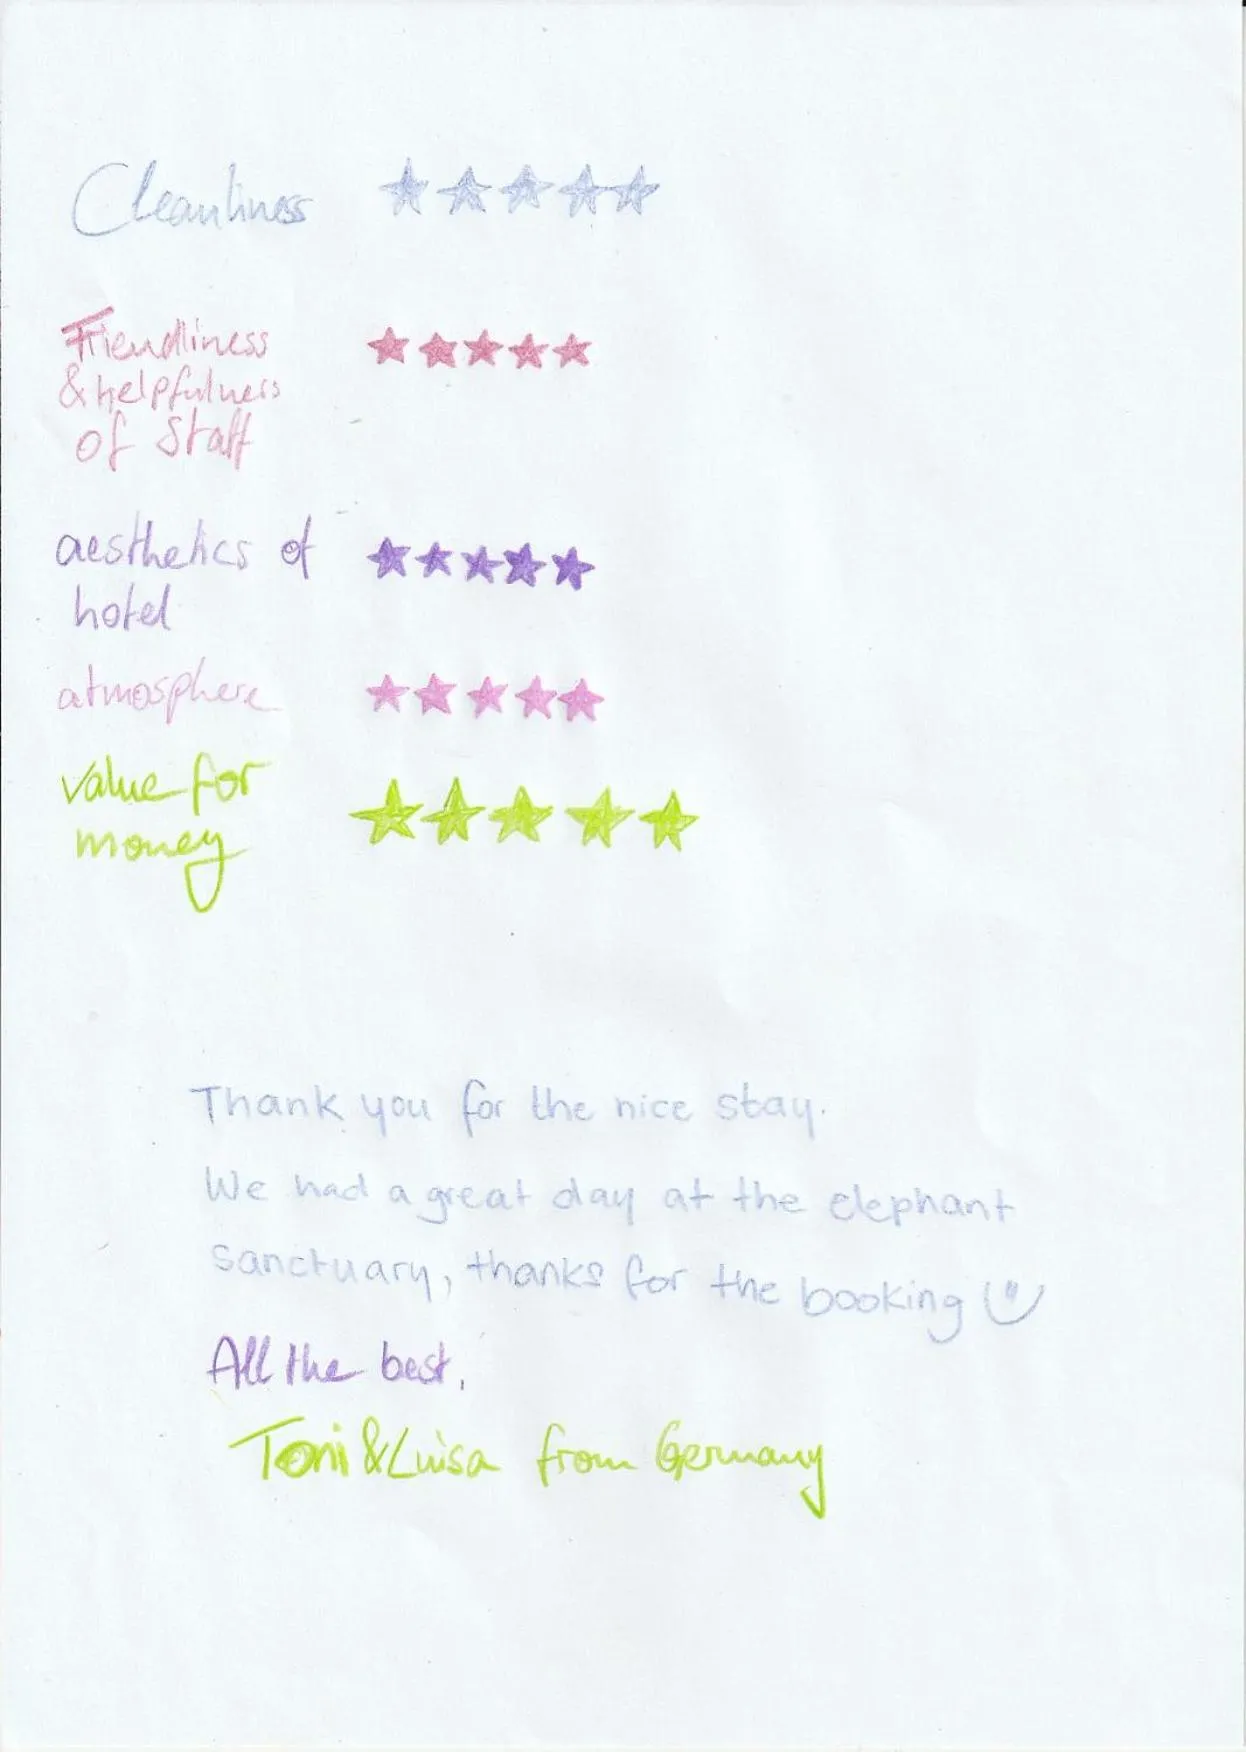 Cleanliness ★★★★★
Friendliness ★★★★★
& helpfulness
of Staff
aesthetics of ★★★★★
hotel
atmosphere ★★★★★
value for ★★★★★
money
Thank you for the nice stay.
We had a great day at the elephant
sanctuary, thanks for the booking
All the best,
Toni & Luisa from Germany